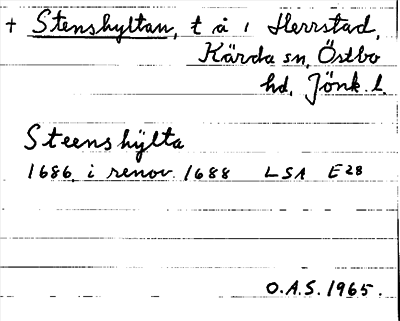 + Stenshyltan, t å i Herrstad,
Kärda sn, Östbo
hd, Jönk. l.
Steenshÿlta
1686 i renov. 1688 LSA E28
O.A.S. 1965.